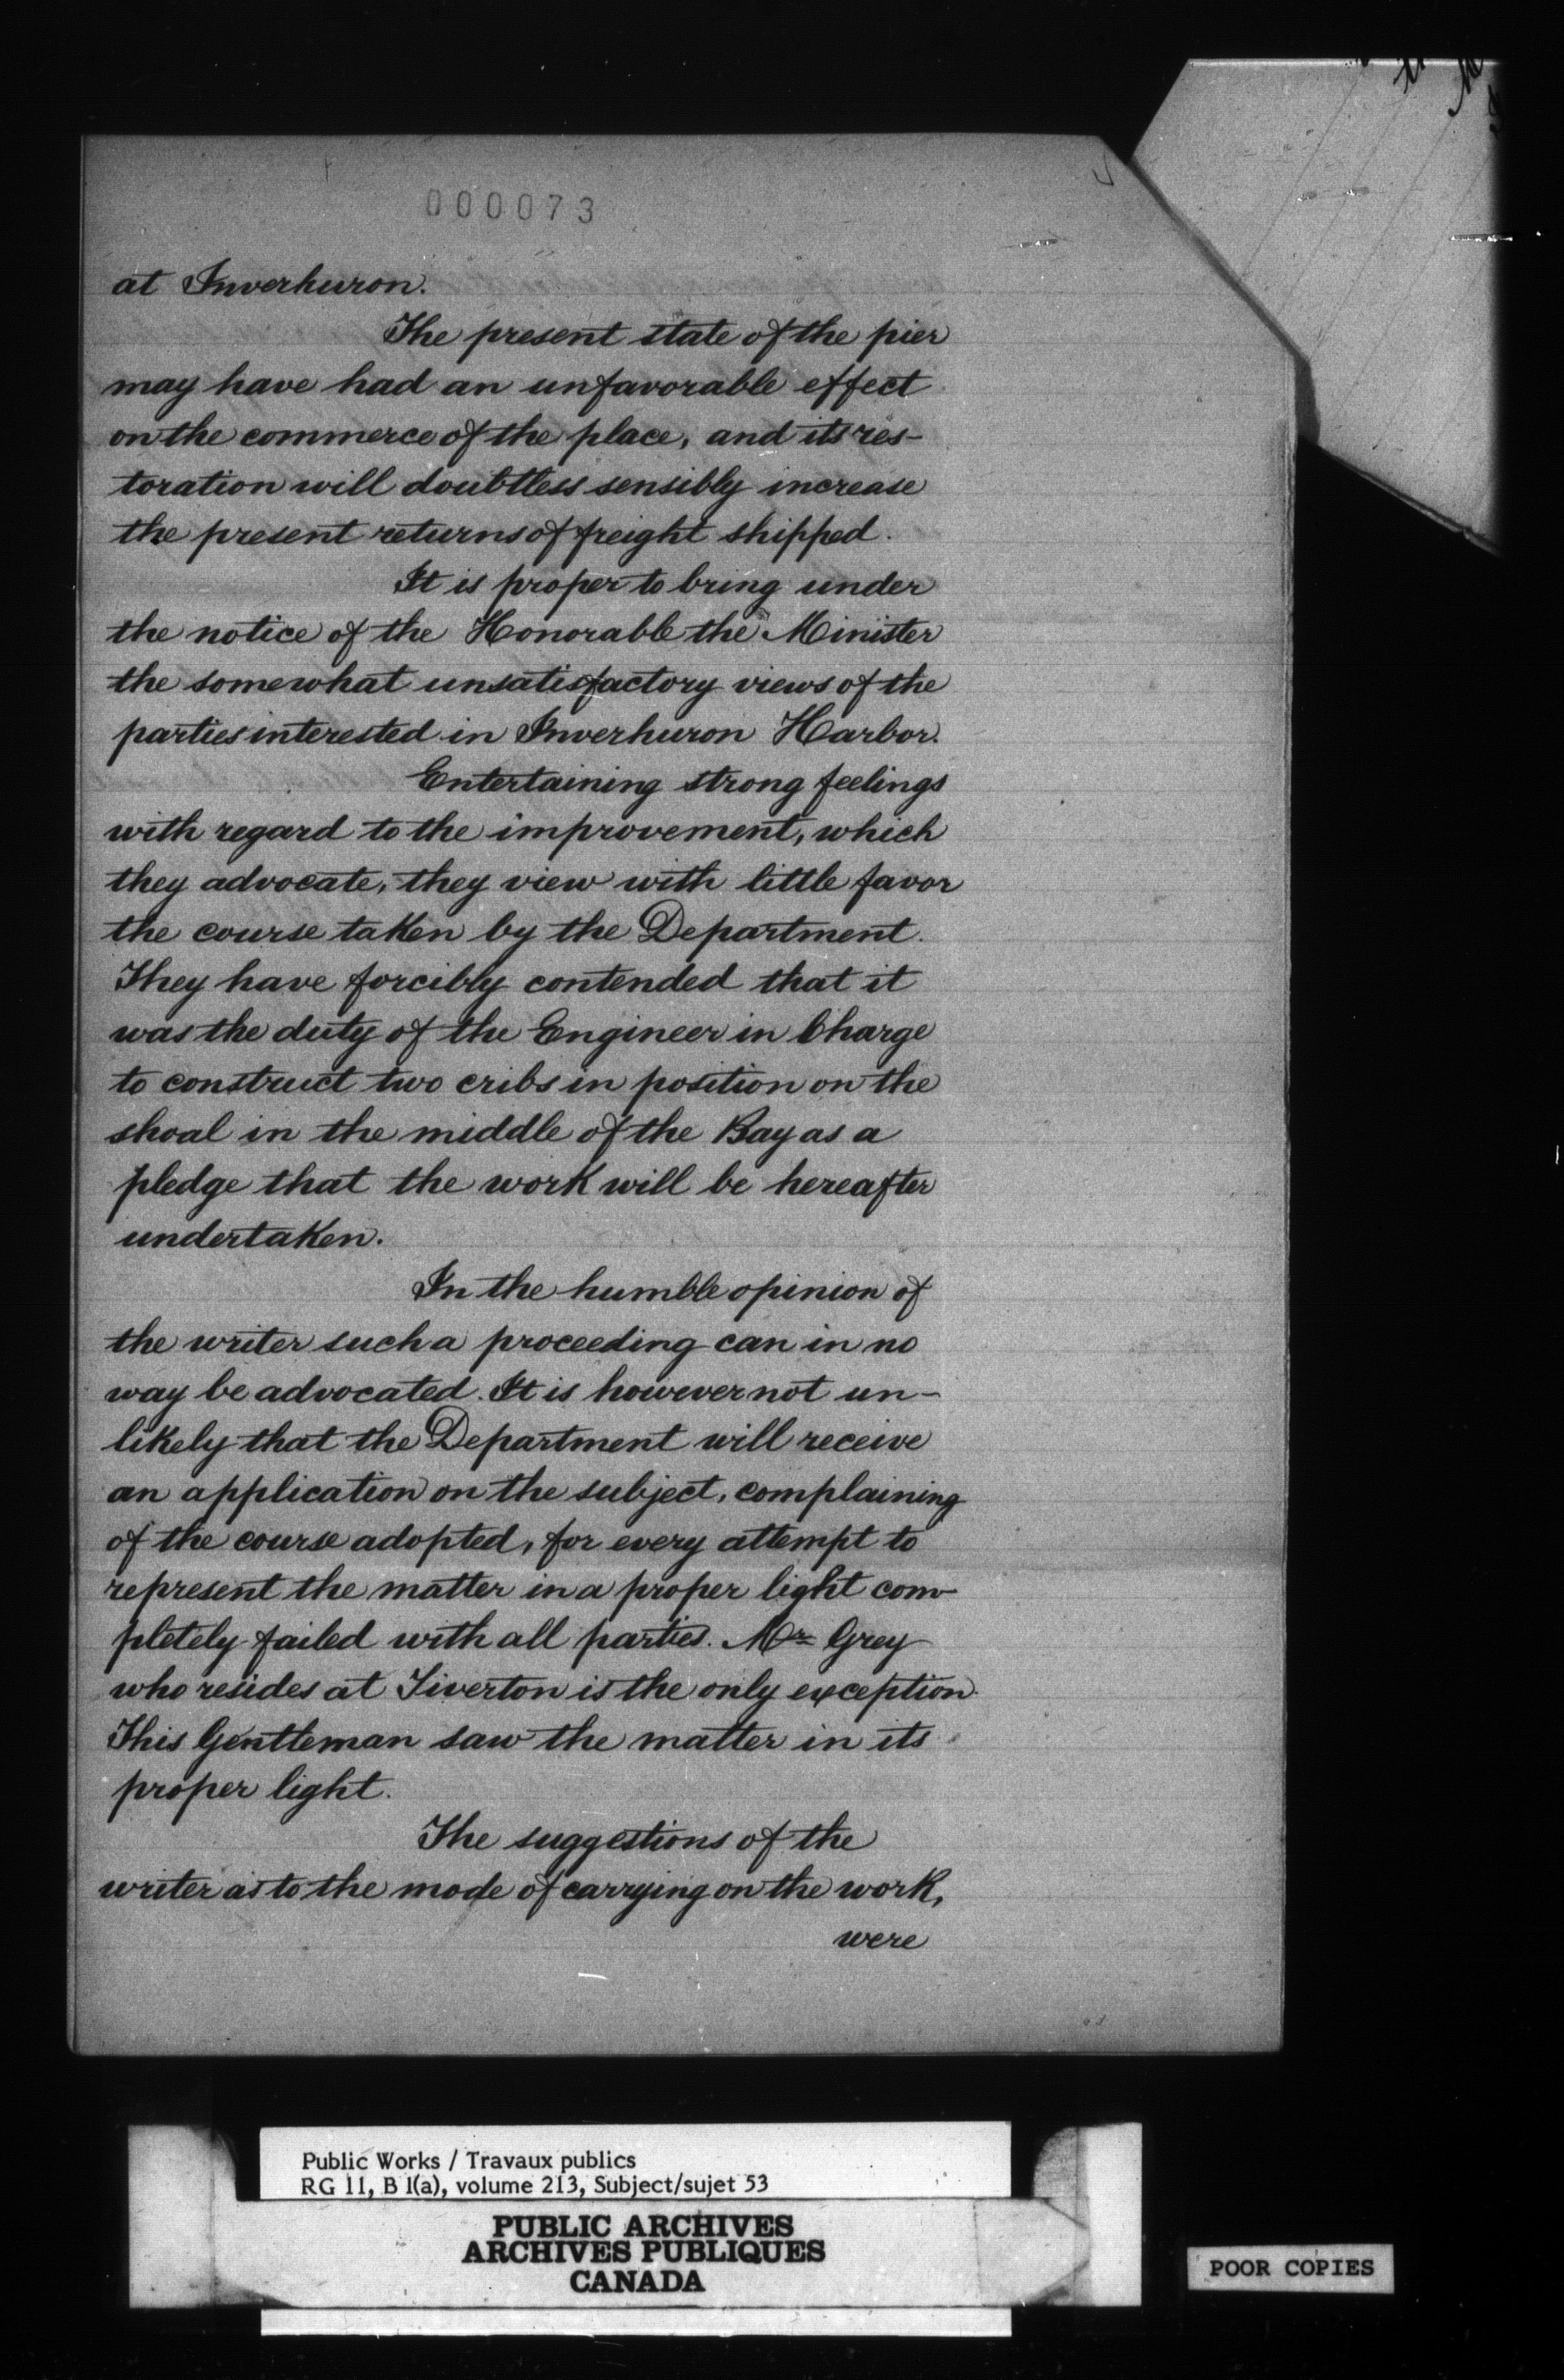 000073
at Inverhuron.
The present state of the pier
may have had an unfavorable effect
on the commerce of the place, and its res-
toration will doubtless sensibly increase
the present returns of freight shipped.
It is proper to bring under
the notice of the Honorable the Minister
the somewhat unsatisfactory views of the
parties interested in Inverhuron Harbor.
Entertaining strong feelings
with regard to the improvement, which
they advocate, they view with little favor
the course taken by the Department.
They have forcibly contended that it
was the duty of the Engineer in Charge
to construct two cribs in position on the
shoal in the middle of the Bay as a
pledge that the work will be hereafter
undertaken.
In the humble opinion of
the writer such a proceeding can in no
way be advocated. It is however not un-
likely that the Department will receive
an application on the subject, complaining
of the course adopted, for every attempt to
represent the matter in a proper light com-
pletely failed with all parties. Mr Grey
who resides at Tiverton is the only exception.
This Gentleman saw the matter in its
proper light.
The suggestions of the
writer as to the mode of carrying on the work,
were
Public Works / Travaux publics
RG 11, B 1(a), volume 213, Subject/sujet 53
PUBLIC ARCHIVES
ARCHIVES PUBLIQUES
CANADA
POOR COPIES